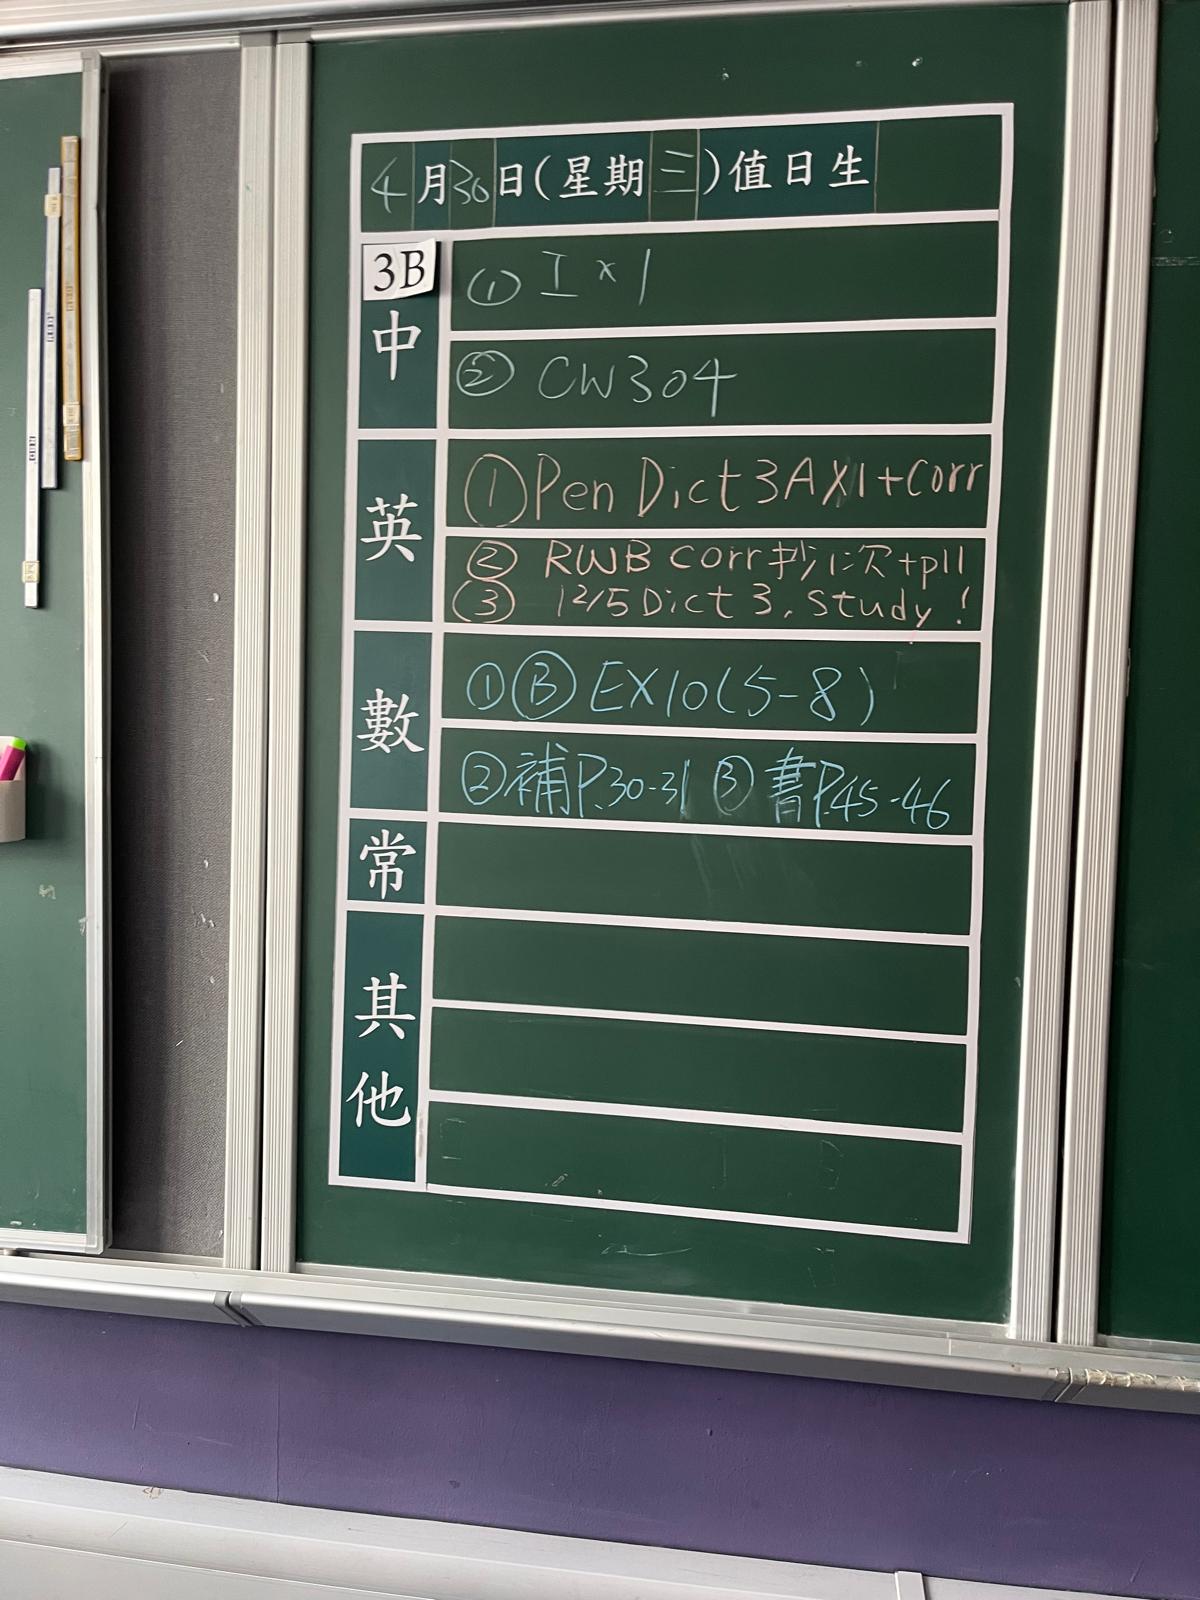 4月30日(星期三)值日生
3B
中
① I × 1
② CW304
英
① Pen Dict 3A X1 + Corr
② RWB corr 抄1次+p11
③ 12/5 Dict 3, study!
數
① Ⓑ EX10(5-8)
② 補P.30-31 ③ 書P.45-46
常
其他